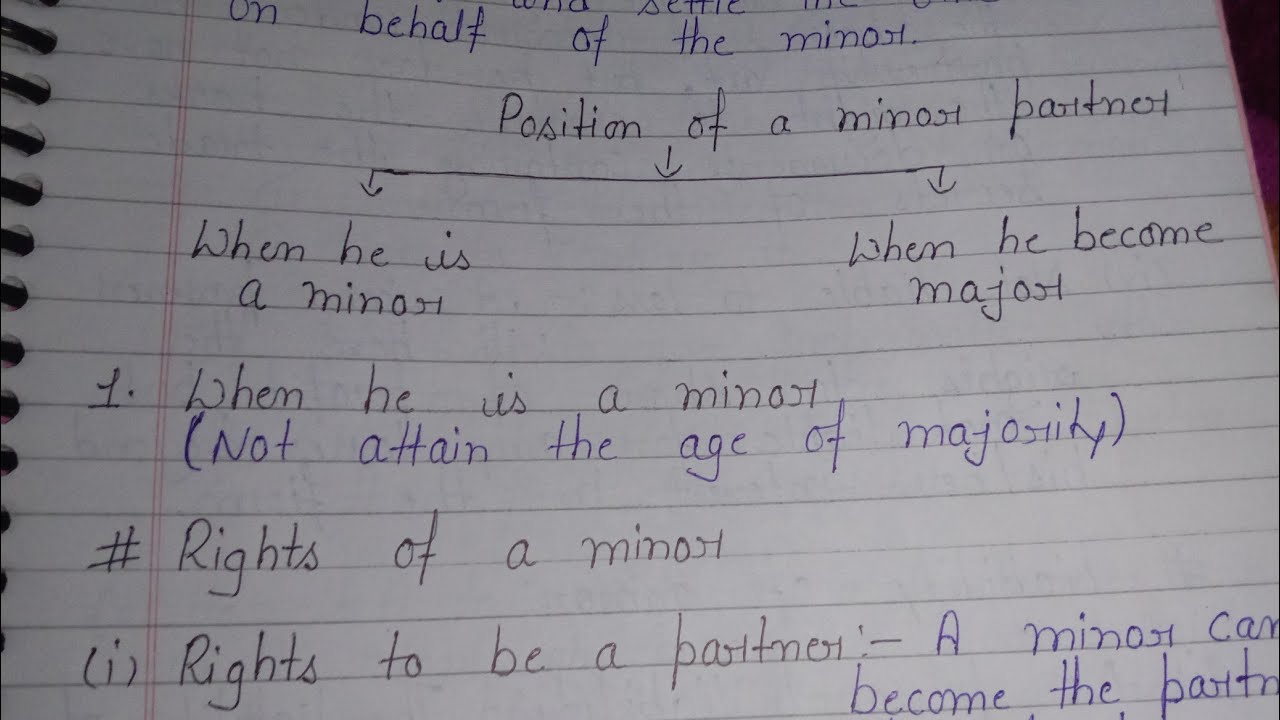 settle
on behalf of the minor.
Position of a minor partner
When he is
a minor
When he become
major
1. When he is a minor
(Not attain the age of majority)
# Rights of a minor
(i) Rights to be a partner:- A minor can
become the partn